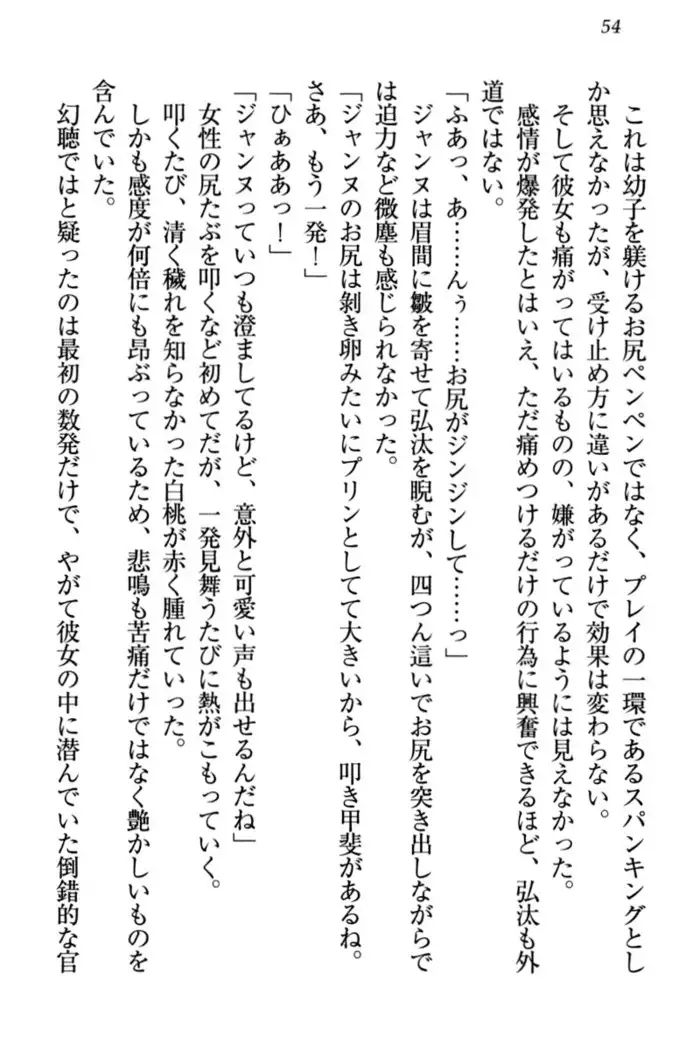 54
これは幼子を躾けるお尻ペンペンではなく、プレイの一環であるスパンキングとし
か思えなかったが、受け止め方に違いがあるだけで効果は変わらない。
そして彼女も痛がってはいるものの、嫌がっているようには見えなかった。
感情が爆発したとはいえ、ただ痛めつけるだけの行為に興奮できるほど、弘汰も外
道ではない。
「ふあっ、あ……んぅ……お尻がジンジンして……っ」
ジャンヌは眉間に皺を寄せて弘汰を睨むが、四つん這いでお尻を突き出しながらで
は迫力など微塵も感じられなかった。
「ジャンヌのお尻は剝き卵みたいにプリンとしてて大きいから、叩き甲斐があるね。
さあ、もう一発！」
「ひぁああっ！」
「ジャンヌっていつも澄ましてるけど、意外と可愛い声も出せるんだね」
女性の尻たぶを叩くなど初めてだが、一発見舞うたびに熱がこもっていく。
叩くたび、清く穢れを知らなかった白桃が赤く腫れていった。
しかも感度が何倍にも昂ぶっているため、悲鳴も苦痛だけではなく艶かしいものを
含んでいた。
幻聴ではと疑ったのは最初の数発だけで、やがて彼女の中に潜んでいた倒錯的な官